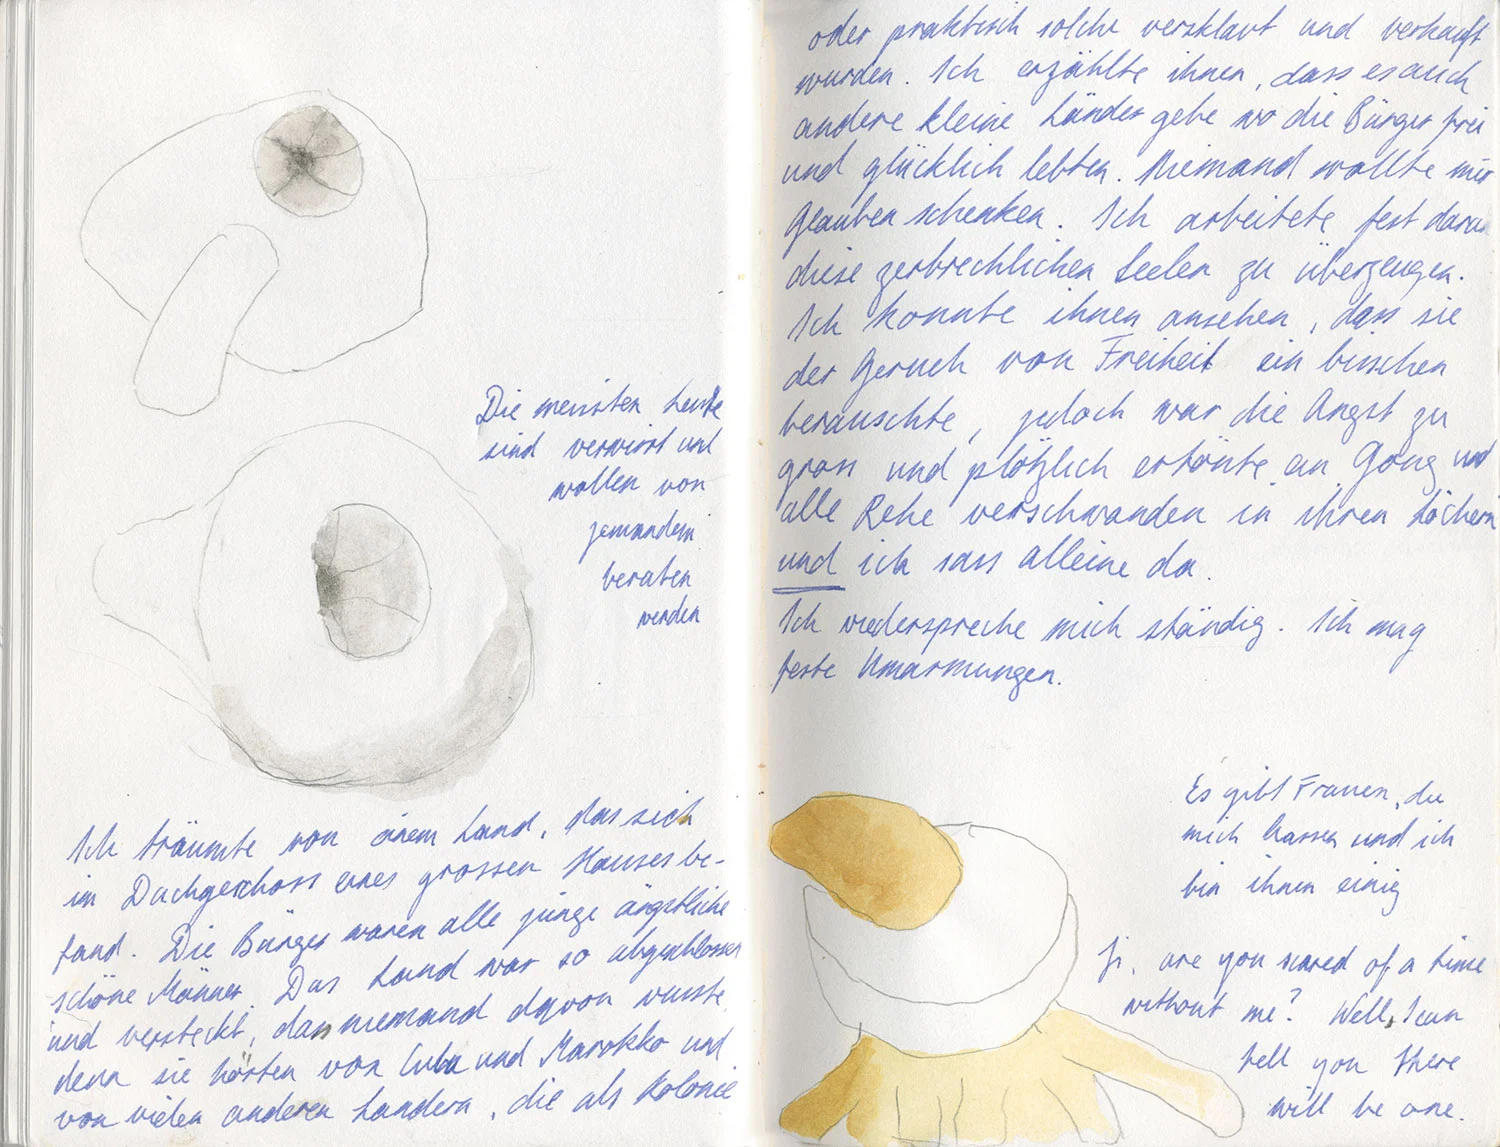 Die meisten Leute
sind verwirrt und
wollen von
jemandem
beraten
werden
Ich träumte von einem Land, das sich
im Dachgeschoss eines grossen Hauses be-
fand. Die Bürger waren alle junge ängstliche
schöne Männer. Das Land war so abgeschlossen
und versteckt, dass niemand davon wusste,
denn sie hörten von Cuba und Marokko und
von vielen anderen Landern, die als Kolonie
oder praktisch solche versklavt und verkauft
wurden. Ich erzählte ihnen, dass es auch
andere kleine Länder gebe wo die Bürger frei
und glücklich lebten. Niemand wollte mir
Glauben schenken. Ich arbeitete fest daran
diese zerbrechlichen Seelen zu überzeugen.
Ich konnte ihnen ansehen, dass sie
der Geruch von Freiheit ein bisschen
berauschte, jedoch war die Angst zu
gross und plötzlich ertönte ein Gong und
alle Rehe verschwanden in ihren Löchern
und ich sass alleine da.
Ich wiederspreche mich ständig. Ich mag
feste Umarmungen.
Es gibt Frauen, die
mich hassen und ich
bin ihnen einig
are you scared of a time
without me? Well, I can
tell you there
will be one.